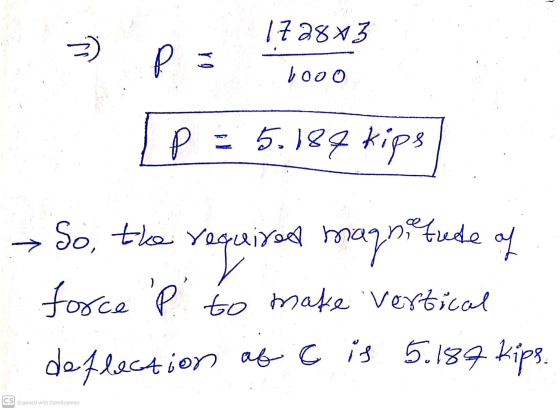 => P = 1728×3
1000
P = 5.184 kips
→ So, the required magnitude of
force 'P' to make vertical
deflection at C is 5.184 kips.
CS Scanned with CamScanner